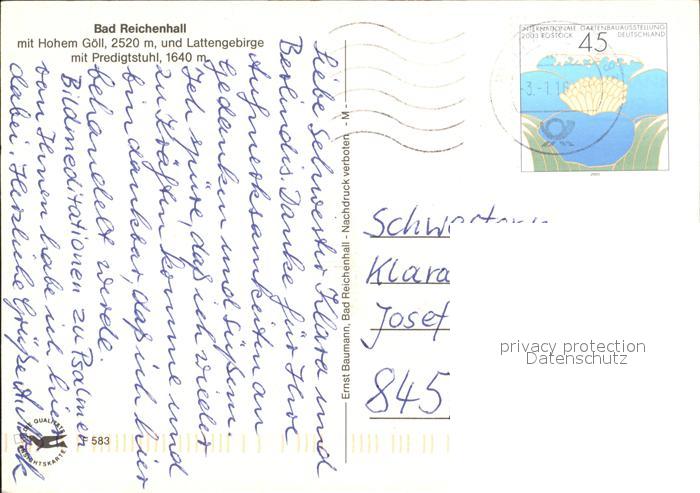 Bad Reichenhall
mit Hohem Göll, 2520 m, und Lattengebirge
mit Predigtstuhl, 1640 m
Liebe Schwester Klara und
Berlindis, Danke für Ihre
Aufmerksamkeiten an
Gedanken und Süßem.
Ich spüre, daß ich wieder
zu Kräften komme und
bin dankbar, daß ich hier
behandelt werde.
Bildmeditationen zu Psalmen
von Ihnen habe ich hier
dabei. Herzliche Grüße
F 583
QUALITÄTS
Ernst Baumann, Bad Reichenhall - Nachdruck verboten - M -
INTERNATIONALE GARTENBAUAUSSTELLUNG
2003 ROSTOCK DEUTSCHLAND
45
-3.-1.
Klara
Josef
845
privacy protection
Datenschutz